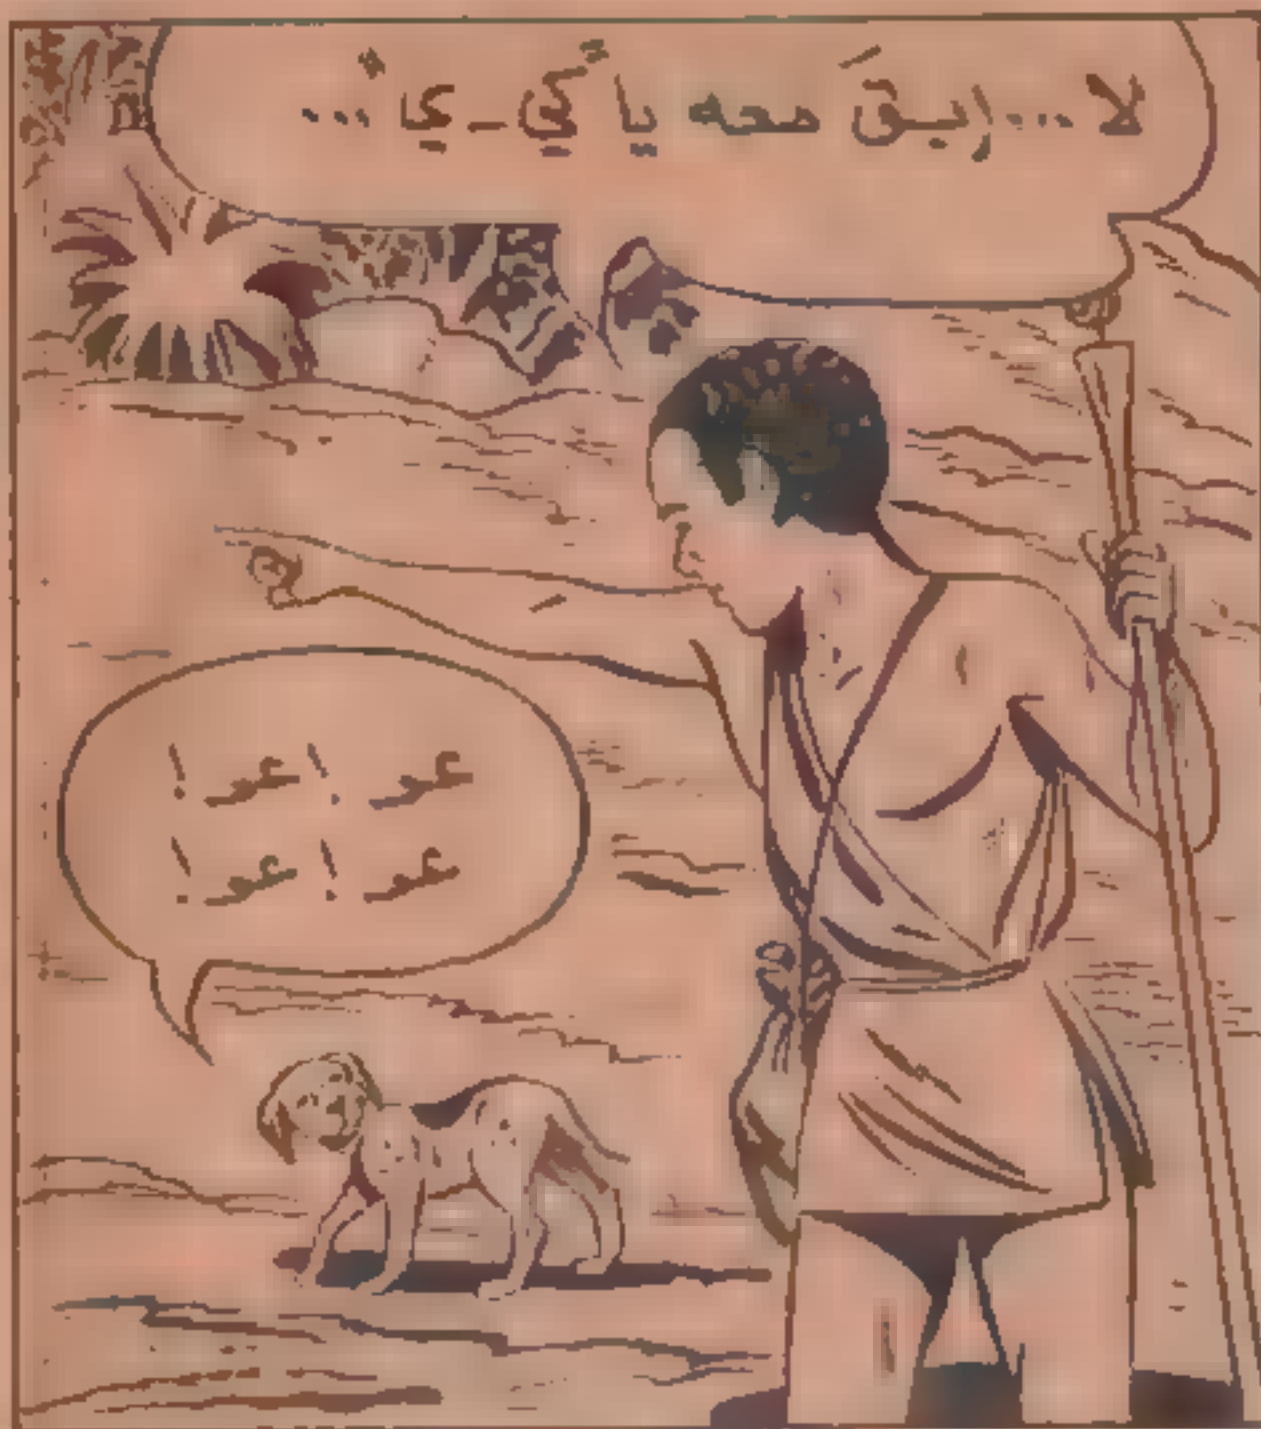 لا... إبقَ معه يا
عو ! عو !
عو ! عو !